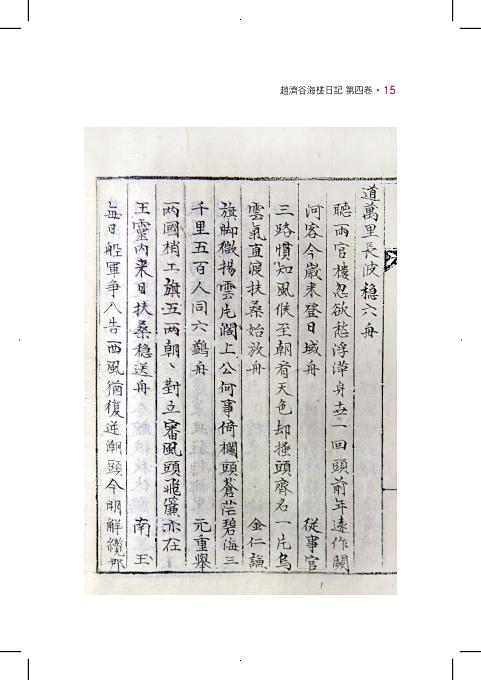 趙濟谷海槎日記 第四卷 • 15
道萬里長波穩六舟
聽雨官樓忽欲愁浮萍身世一回頭前年遠作關
河客今歲來登日域舟　從事官
三路慣知風候至朝看天色却搔頭齊名一片烏
雲氣直渡扶桑始放舟　金仁謙
旗脚微揚雲片閣上公何事倚欄頭蒼茫碧海三
千里五百人同六鷁舟　元重擧
兩國梢工旗五兩朝丶對立審風頭飛簾亦在
王靈內來日扶桑穩送舟　南玉
每日舵軍爭入告西風猶復逆潮頭今明解纜那